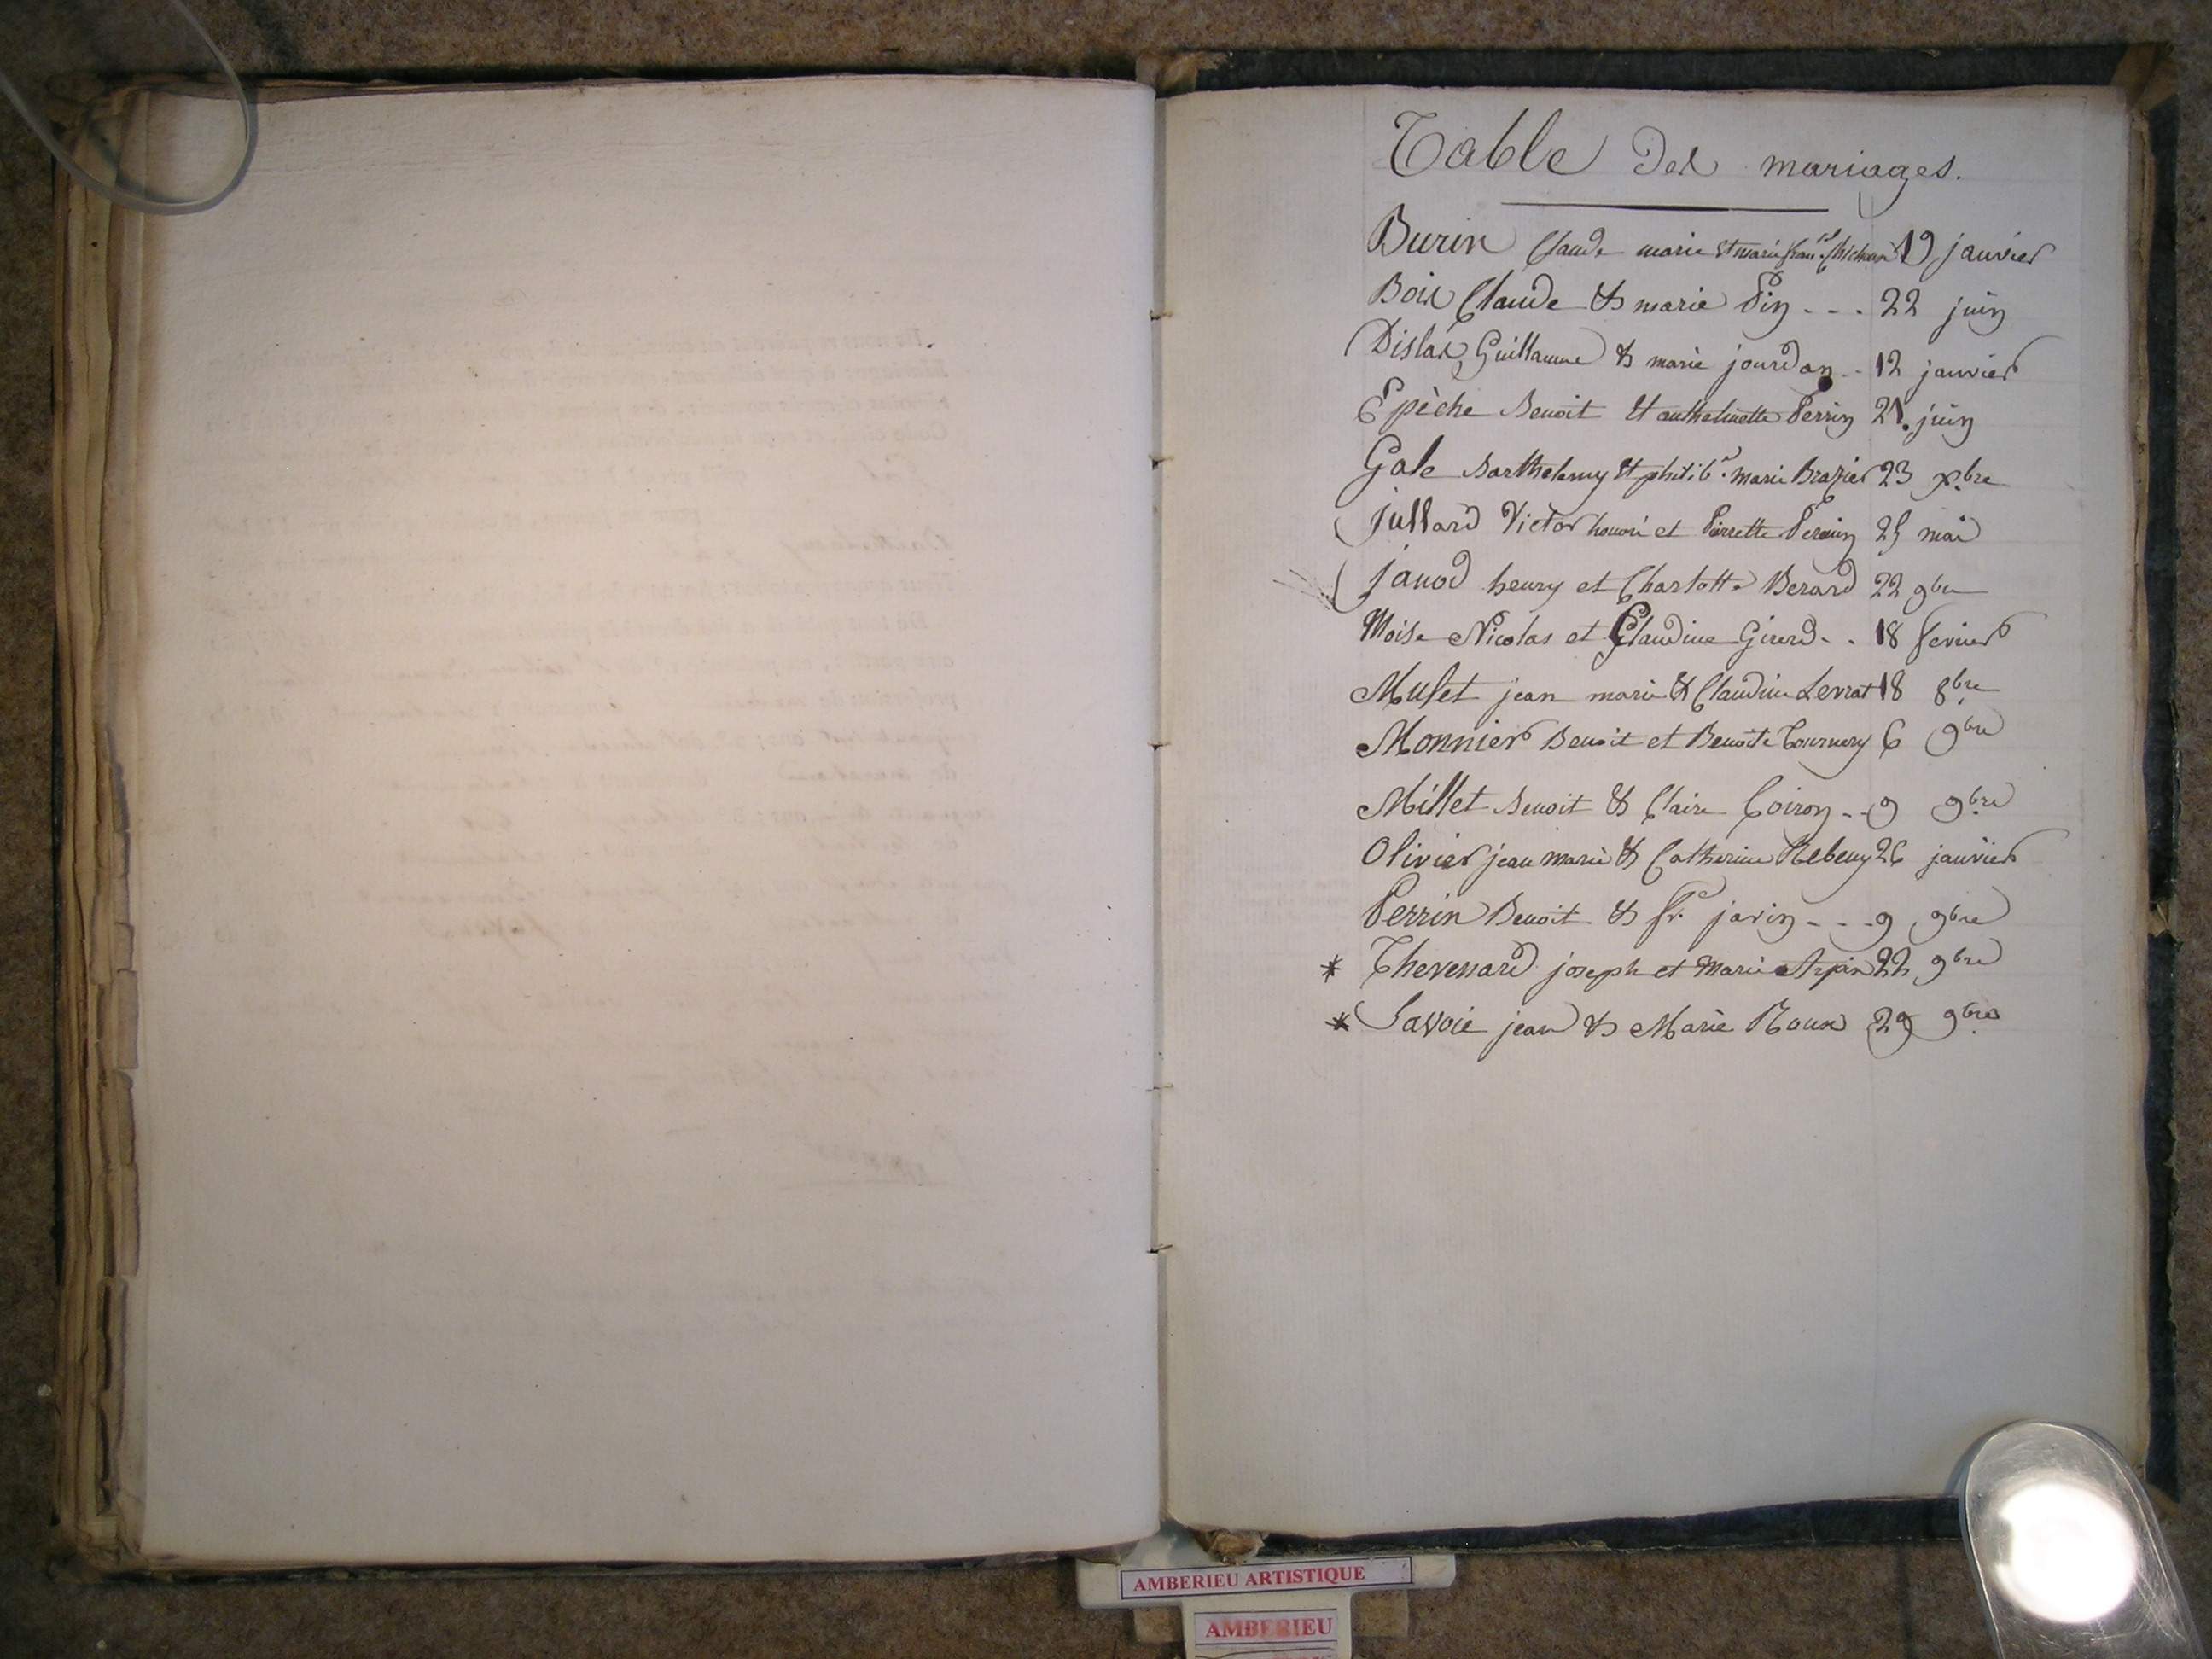 Table des mariages.
Burin Claude marie et marie fran.se 19 janvier
Bois Claude & marie Pin - - - 22 juin
Dislas, Guillaume & marie jourdan - - 12 janvier
Epèche Benoit et anthelmette Perrin 21. juin
Gale Barthelemy et philib.e marie Brazier 23 xbre
Jullard Victor honoré et Pierrette 25 mai
Janod henry et Charlotte Berard 22 9bre
Moise Nicolas et Claudine Girerd - - 18 fevrier
Mulet jean marie & Claudine Levrat 18 8bre
Monnier Benoit et Benoite Tournery 6 9bre
Millet Benoit & Claire Coiron - - 9 9bre
Olivier jean marie & Catherine 26 janvier
Perrin Benoit & fr.e javin - - - 9 9bre
* Thevenard joseph et Marie Arpin 22 9bre
* Savoie jean & Marie Roux 29 9bre
AMBERIEU ARTISTIQUE
AMBERIEU